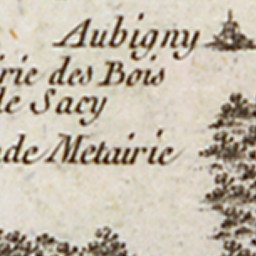 Aubigny
rie des Bois
de Sacy
nde Metairie